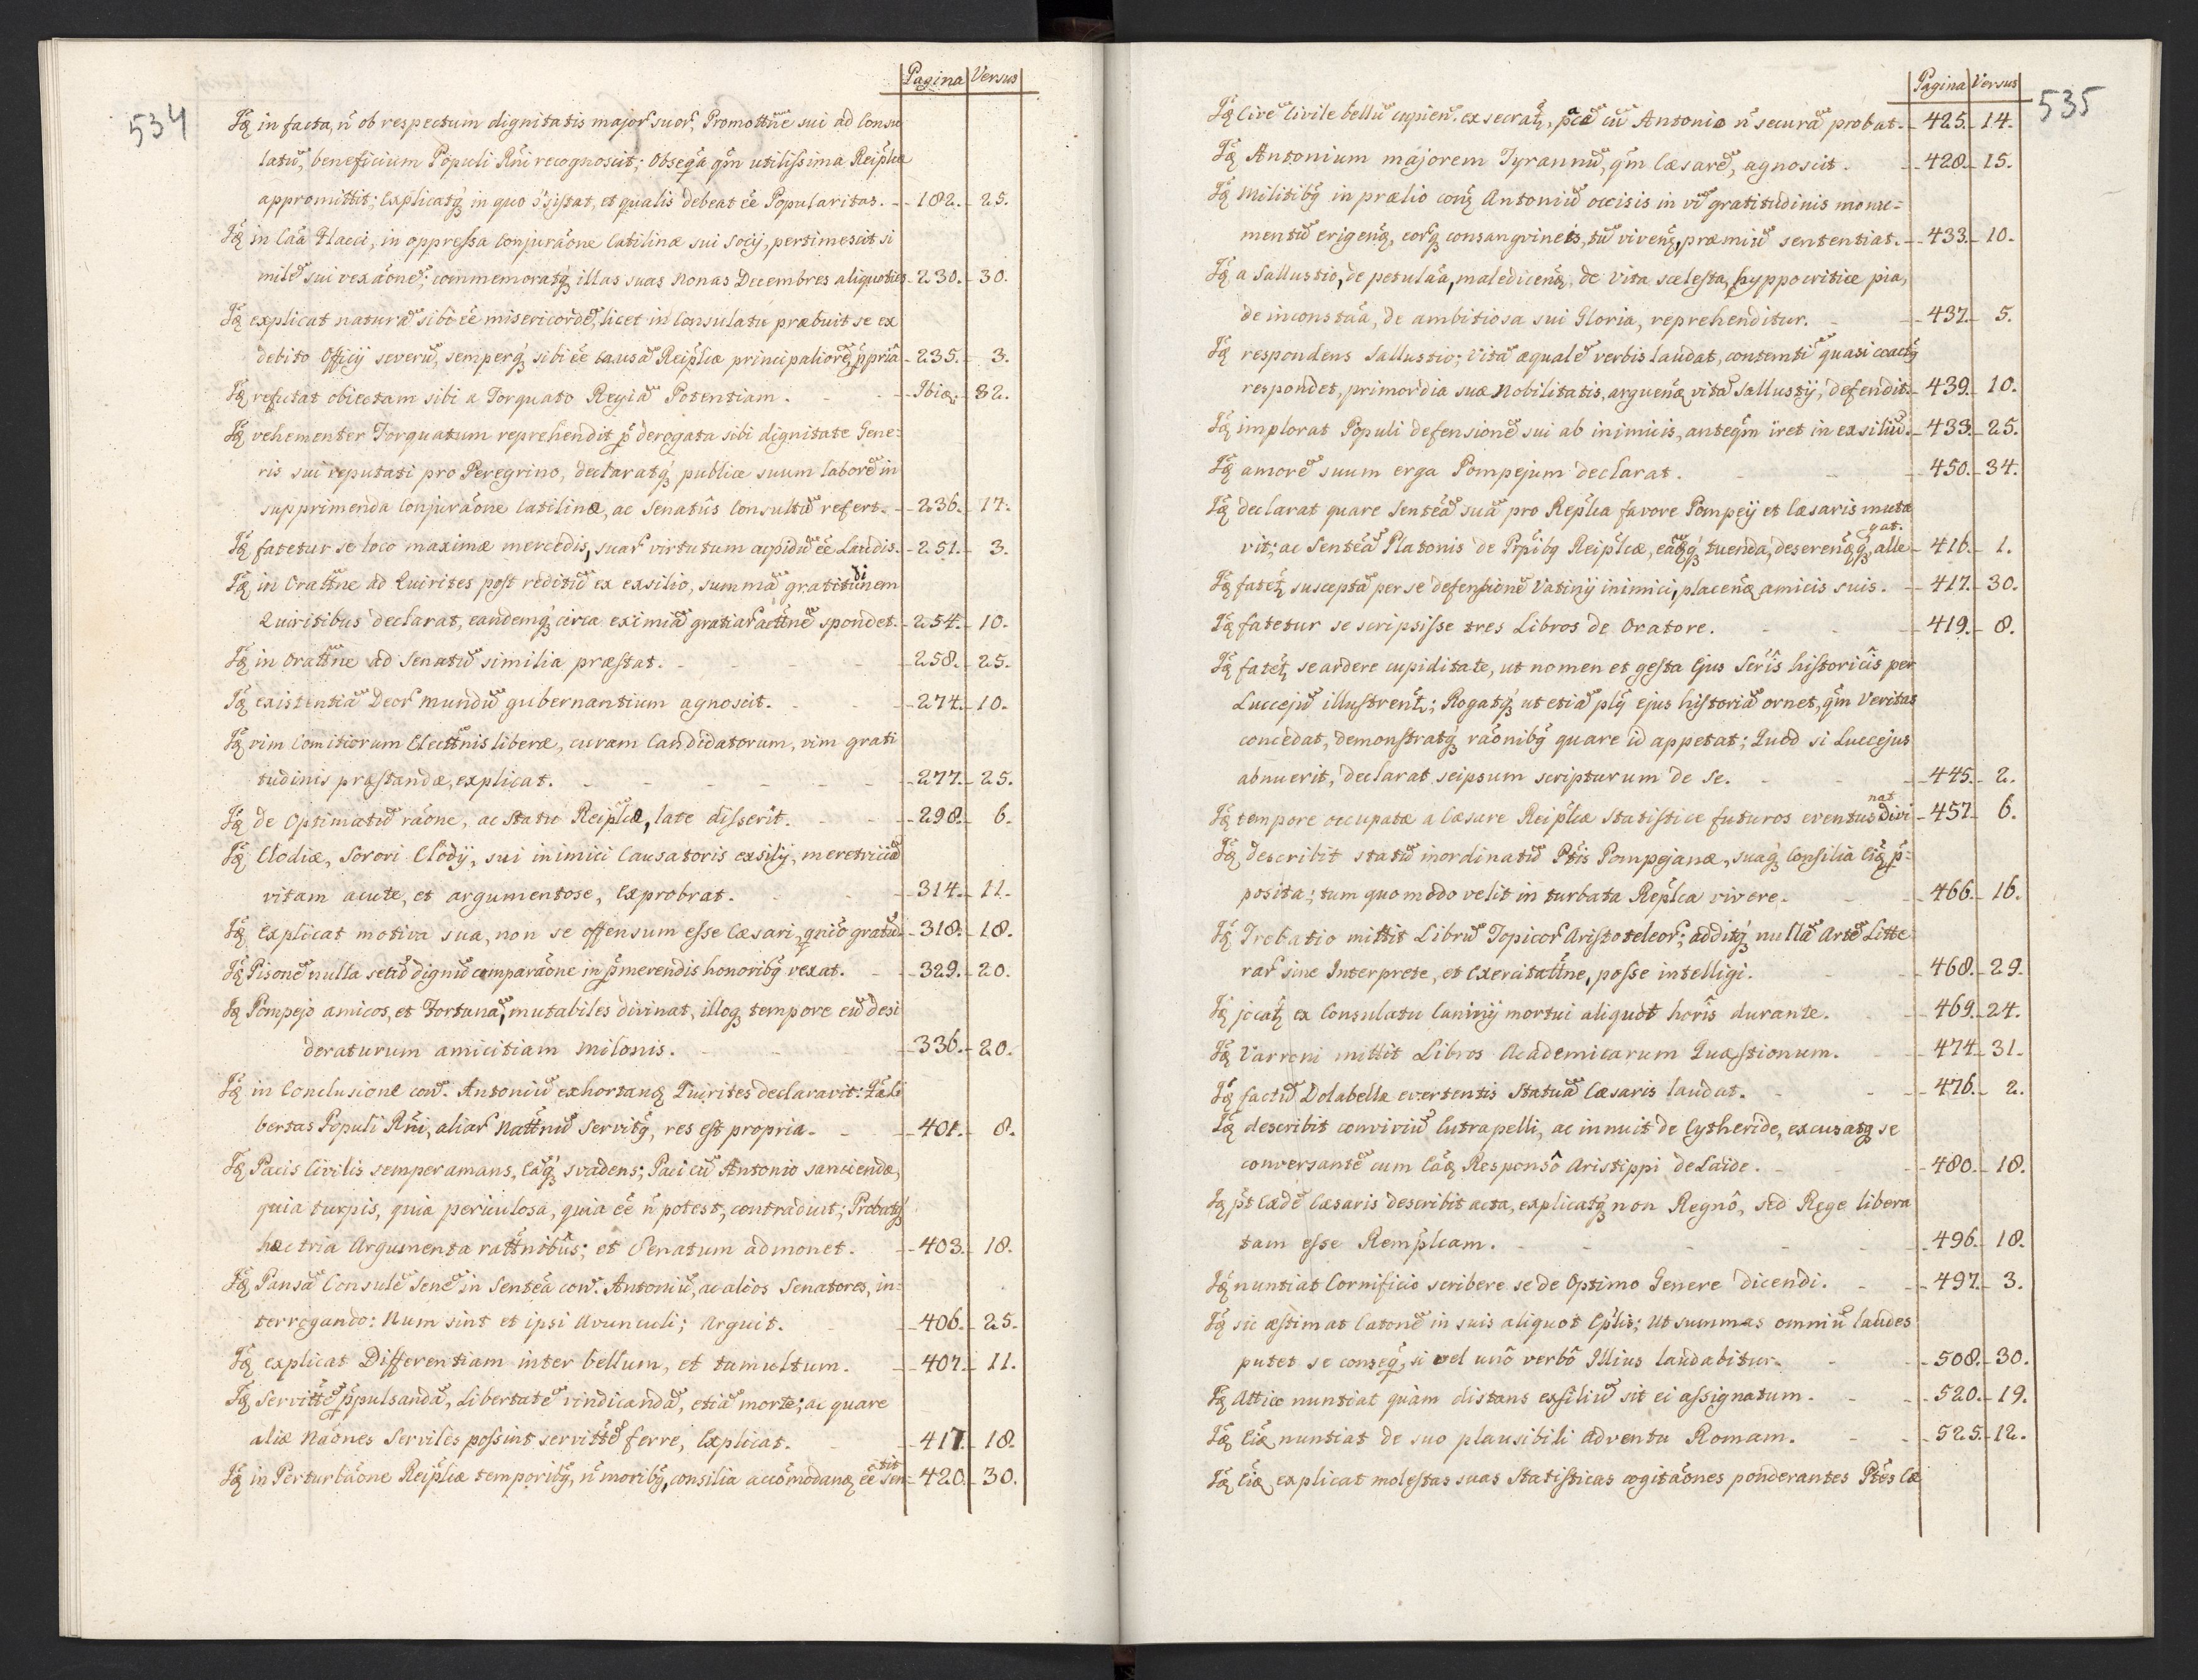 534
Pagina Versus
in facta, ñ ob respectum dignitatis major suor, Promottne sui ad Consu
latũ, beneficium Populi Rñi recognoscit; Obseqa qm utilissima Reiplcæ
appromittit; Explicatq in quo sistat, et qualis debeat ee Popularitas. - 182. - 25.
in Caa Flacci, in oppressa Conjuraone Catilinæ sui Socij, pertimescit si
milẽ sui vexaonẽ; commemoratq illas suas Nonas Decembres aliquoties - 230. - 30.
explicat naturã sibi ee misericordẽ, licet in Consulatu præbuit se ex
debito Officij severũ, semperq sibi ee causã Reiplcæ principaliorẽ ppria - 235. - 3.
refutat obiectam sibi a Torquato Regiã Potentiam. - Ibi - 32.
vehementer Torquatum reprehendit p derogata sibi dignitate Gene-
ris sui reputati pro Peregrino, declaratq publice suum laborẽ in
supprimenda Conjuraone Catilinæ, ac Senatus Consultũ refert. - 236. - 17.
fatetur se loco maximæ mercedis, suar virtutum cupidũ ee Laudis. - 251. - 3.
in Orattne ad Quirites post reditũ ex exsilio, summã gratitudinem
Quiritibus declarat, eandemq circa eximiã gratiar acttnẽ spondet. - 254. - 10.
in Orattne ad Senatũ similia præstat. - 258. - 25.
existentiã Deor mundũ gubernantium agnoscit. - 274. - 10.
vim Comitiorum Electtnis liberæ, curam Candidatorum, vim grati
tudinis præstandæ, explicat. - 277. - 25.
de Optimatũ raone, ac Statu Reiplcæ, late disserit. - 298. - 6.
Clodiæ, Sorori Clodij, sui inimici Causatoris exsilij, meretriciã
vitam acute, et argumentose, Exprobrat. - 314. - 11.
Explicat motiva sua, non se offensum esse Cæsari, gratũ - 318. - 18.
Pisonẽ nulla secũ dignũ comparaone in pmerendis honoribq vexat. - 329. - 20.
Pompejo amicos, et Fortunã, mutabiles divinat, illoq tempore eũ desi
deraturum amicitiam Milonis. - 336. - 20.
in Conclusione con. Antoniũ exhortans Quirites declaravit: Li
bertas Populi Rñi, aliar Nattnũ Servitq, res est propria. - 401. - 8.
Pacis Civilis semper amans, Eaq svadens; Paci cũ Antonio sanciendæ,
quia turpis, quia periculosa, quia ee ñ potest, contradicit; Probatq
hæc tria Argumenta rattnibus; et Senatum admonet. - 403. - 18.
Pansã Consulẽ Senẽ in Sentea con. Antoniũ, ac alios Senatores, in-
terrogando: Num sint et ipsi Avunculi; Arguit. - 406. - 25.
explicat Differentiam inter bellum, et tumultum. - 407. - 11.
Servittẽ ppulsandã, Libertatẽ vindicandã, etiã morte; ac quare
aliæ Naones Serviles possint servittẽ ferre, Explicat. - 417. - 18.
in Perturbaone Reiplcæ temporibq, ñ moribq, consilia accomodanda ee sen tit - 420. - 30.
Pagina Versus
535
Cive Civile bellũ cupien. exsecrat, pace cũ Antonio ñ securã probat. - 425. - 14.
Antonium majorem Tyrannũ, qm Cæsarẽ, agnoscit. - 428. - 15.
Militibq in prælio con Antoniũ occisis in vim gratitudinis monu-
mentũ erigenda, eorq consangvineis, tũ viven, præmiũ sententiat. - 433. - 10.
a Sallustio, de petulaa, maledicen, de Vita scelesta, hyppocritice pia,
de inconstaa, de ambitiosa sui Gloria, reprehenditur. - 437. - 5.
respondens Sallustio; Vitã æqualẽ verbis laudat, contemtim quasi coactq
respondet, primordia suæ Nobilitatis, arguendæ vitã Sallustij, defendit. - 439. - 10.
implorat Populi defensionẽ sui ab inimicis, anteqm iret in exsiliũ. - 433. - 25.
amorẽ suum erga Pompejum declarat. - 450. - 34.
declarat quare Senteã suã pro Replca favore Pompeij et Cæsaris muta
vit; ac Senteã Platonis de Ppibq Reiplcæ, eaqq tuenda, deserendaq, alle gat. - 416. - 1.
fatet susceptã per se defensionẽ Vatinij inimici, placen amicis suis. - 417. - 30.
fatetur se scripsisse tres Libros de Oratore. - 419. - 8.
fatet se ardere cupiditate, ut nomen et gesta Ejus Scris historicis per
Luccejũ illustrent; Rogatq ut etiã plq ejus historiã ornet, qm Veritas
concedat, demonstratq raonibq quare id appetat; Quod si Luccejus
abnuerit, declarat seipsum scripturum de Se. - 445. - 2.
tempore occupatæ a Cæsare Reiplcæ Statistice futuros eventus divi nat - 457. - 6.
describit statũ inordinatũ Ptis Pompejanæ, suaq Consilia Ei p-
posita; tum quomodo velit in turbata Replca vivere. - 466. - 16.
Trebatio mittit Librũ Topicor Aristoteleor; additq nullã Artẽ Litte
rar sine Interprete, et Exercitattne, posse intelligi. - 468. - 29.
jocat ex Consulatu Caninij mortui aliquot horis durante. - 469. - 24.
Varroni mittit Libros Academicarum Quæstionum. - 474. - 31.
factũ Dolabellæ evertentis Statuã Cæsaris laudat. - 476. - 2.
describit conviviũ Eutrapelli, ac innuit de Cytheride, excusatq se
conversantẽ cum Ea Responso Aristippi de Laide. - 480. - 18.
pt Cædẽ Cæsaris describit acta, explicatq non Regno, sed Rege libera
tam esse Remplcam. - 496. - 18.
nuntiat Cornificio scribere se de Optimo Genere dicendi. - 497. - 3.
sic æstimat Catonẽ in suis aliquot Eplis; Ut summas omniũ laudes
putet se conseq, si vel uno verbo Illius laudabitur. - 508. - 30.
Attico nuntiat quàm distans exsiliũ sit ei assignatum. - 520. - 19.
Eiq nuntiat de suo plausibili Adventu Romam. - 525. - 12.
Eiq explicat molestas suas Statisticas cogitaones ponderantes Ptes Cæ